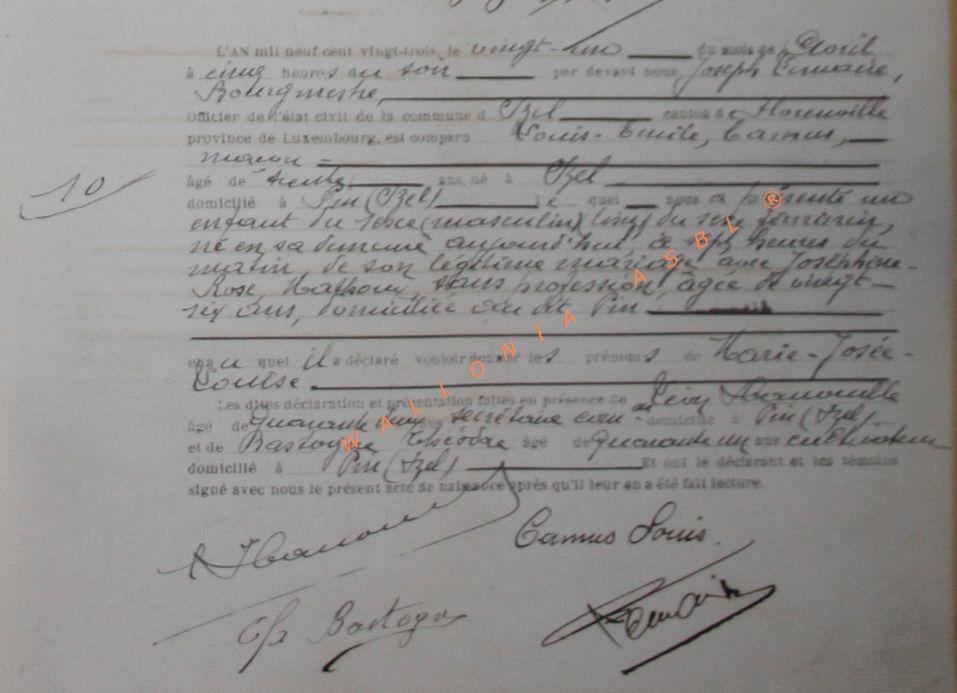 L'AN mil neuf cent vingt-trois, le vingt-un du mois de Avril
à cinq heures du soir par devant nous Joseph
Bourgmestre,
Officier de l'état civil de la commune d'Izel canton de Florenville
province de Luxembourg, est comparu Louis-Emile, Camus,
maçon
10
âgé de trente ans, né à Izel
domicilié à Pin (Izel) le quel nous a présenté un
enfant du sexe (masculin) du sexe féminin,
né en sa demeure aujourd'hui, à sept heures du
matin, de son légitime mariage avec Joséphine-
Rose sans profession, âgée de vingt-
six ans, domiciliée au dit Pin
et au quel il a déclaré vouloir donner les prénoms de Marie-Josée-
Louise
Les dites déclaration et présentation faites en présence de Léon
âgé de quarante ans secrétaire com domicilié à Pin (Izel)
et de Bastogne Théodore âgé de quarante un ans cultivateur
domicilié à Pin (Izel) Et ont le déclarant et les témoins
signé avec nous le présent acte de naissance après qu'il leur en a été fait lecture.
Camus Louis.
Bastogne
WALLONIA ASBL ®